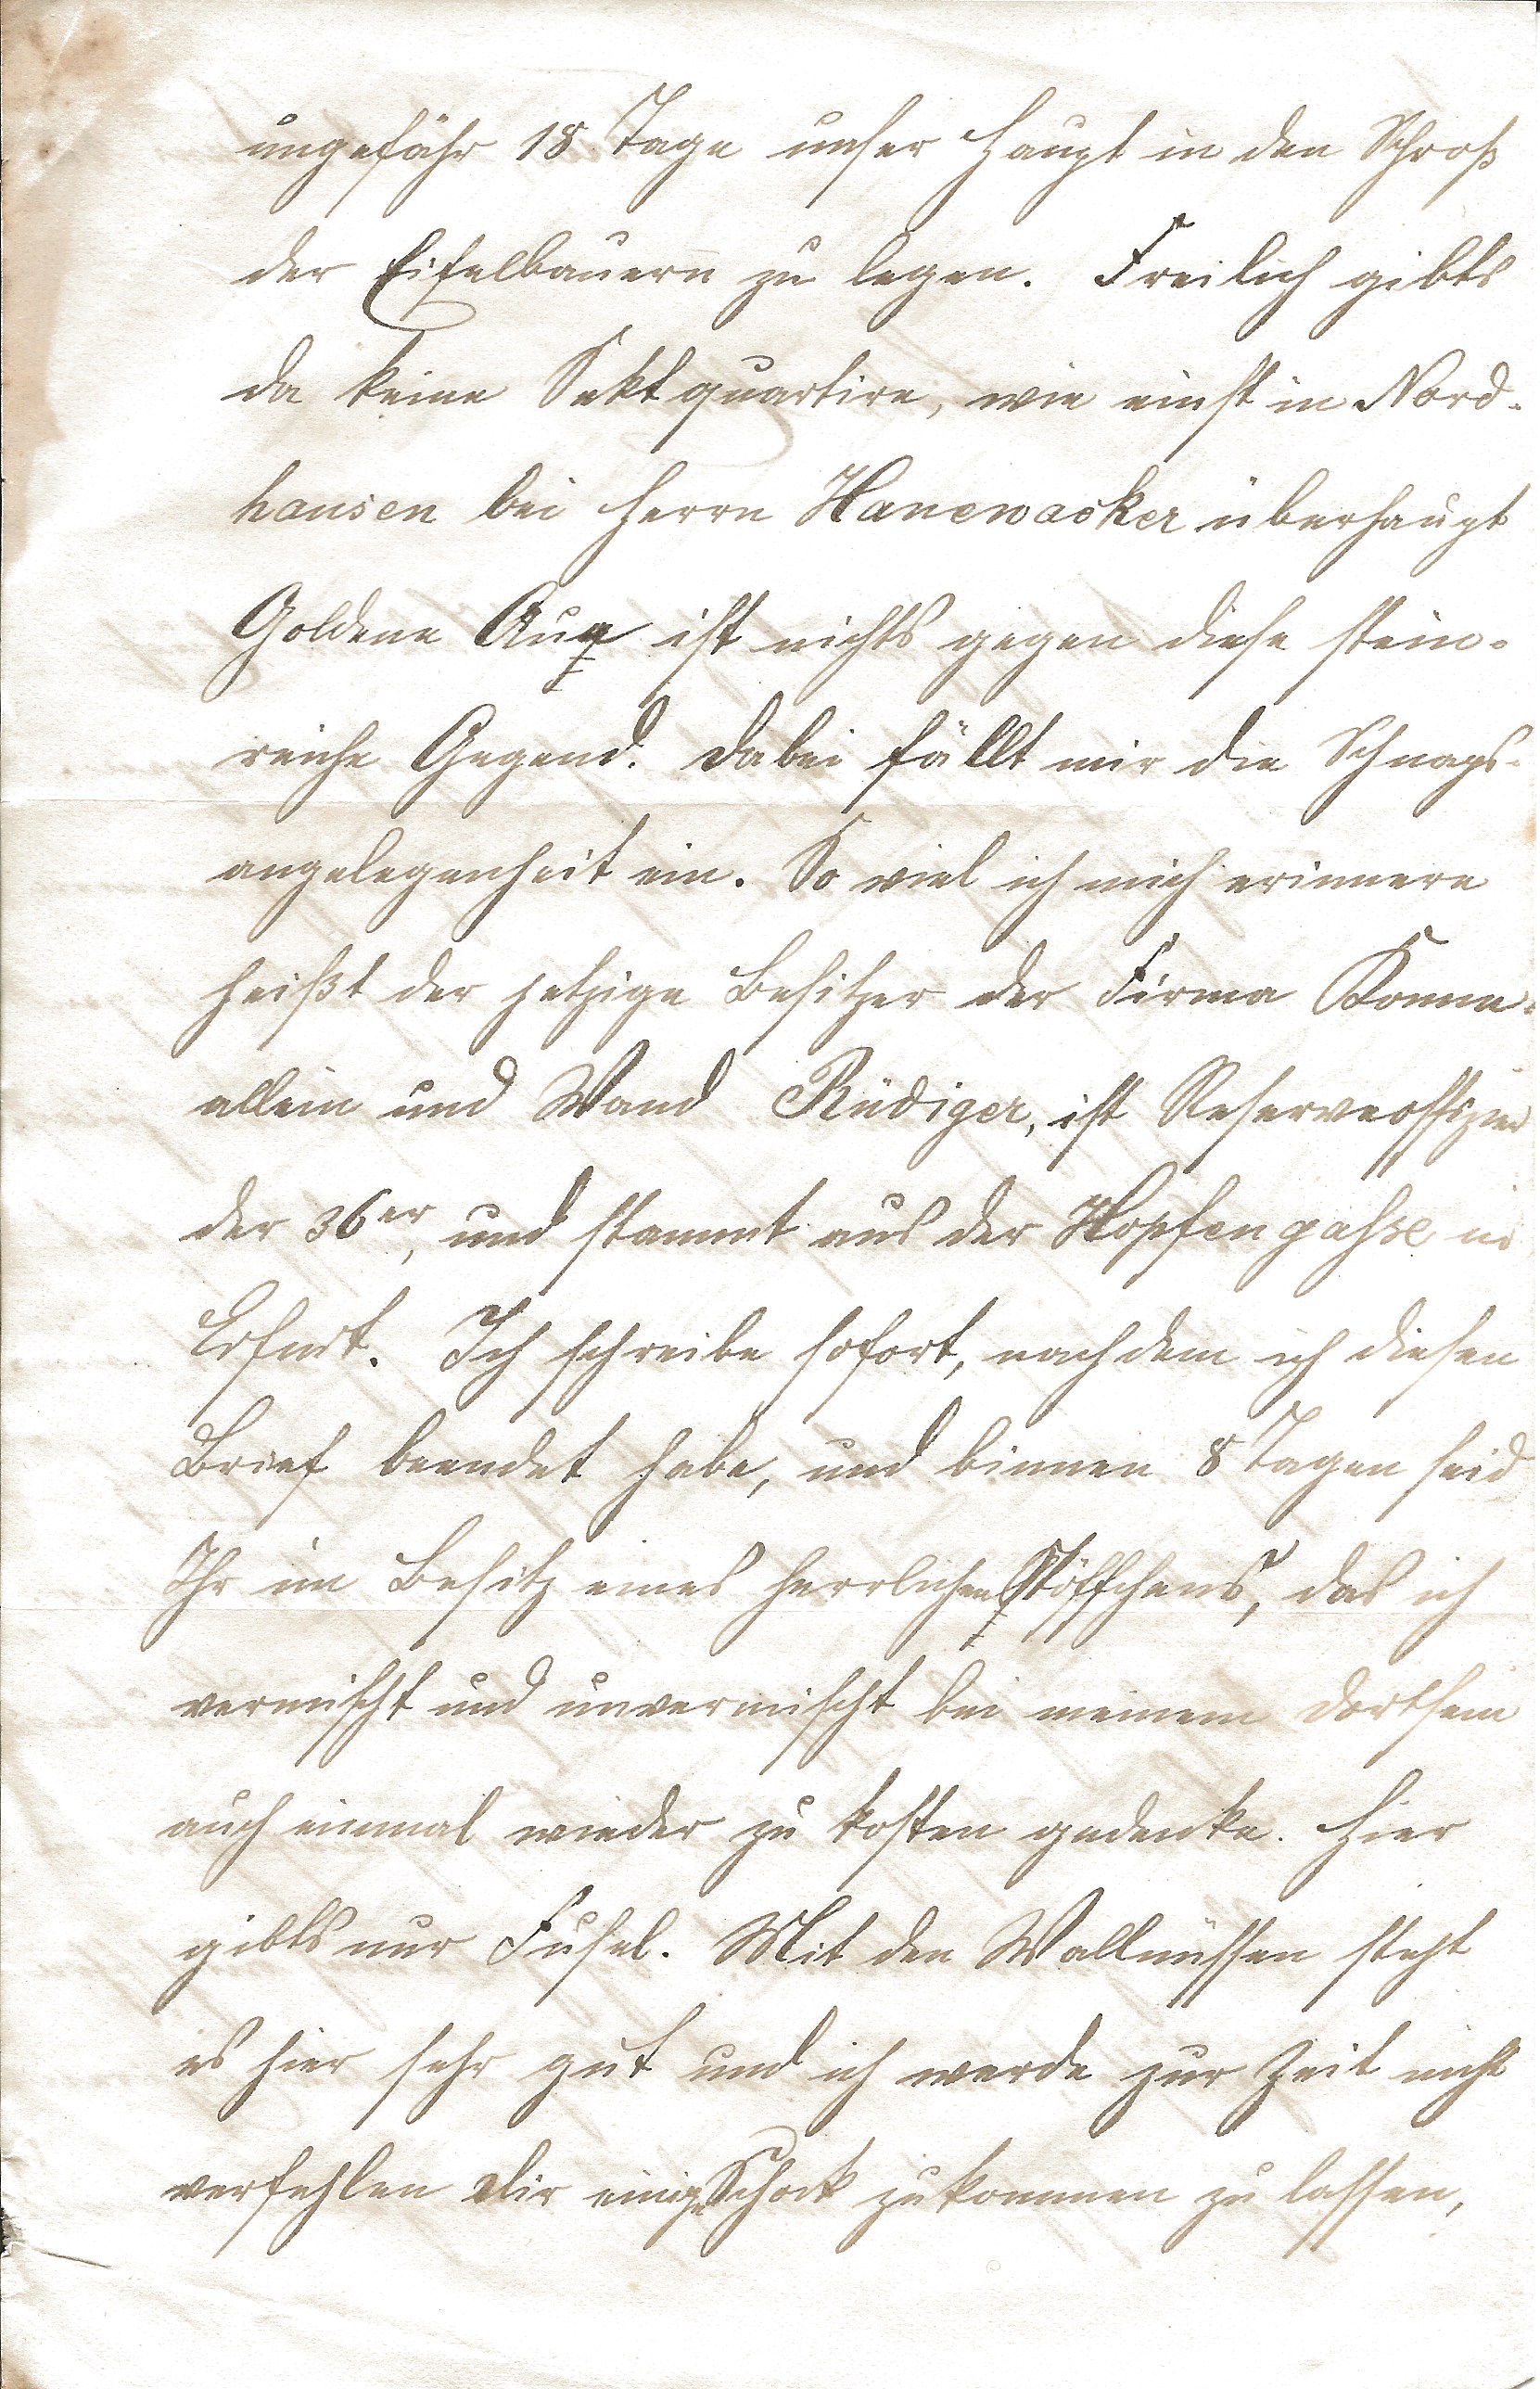 ungefähr 18 Tage unser Haupt in den Schooß
der Eifelbauern zu legen. Freilich gibts
da keine Sektquartire, wie einst in Nord-
hausen bei Herrn Hanewacker überhaupt
Goldene Aue ist nichts gegen diese stein-
reiche Gegend. Dabei fällt mir die Schnaps-
angelegenheit ein. So viel ich mich erinnere
heißt der jetzige Besitzer der Firma
allein und Wand Rüdiger, ist Reserveoffizier
der 36er, und stammt aus der Hopfengasse in
Erfurt. Ich schreibe sofort, nachdem ich diesen
Brief beendet habe, und binnen 8 Tagen seid
Ihr im Besitz eines herrlichen Stöffchens, das ich
vermischt und unvermischt bei meinem Dortsein
auch einmal wieder zu kosten gedenke. Hier
gibts nur Fusel. Mit den Wallnüssen steht
es hier sehr gut und ich werde zur Zeit nicht
verfehlen Dir einige Schock zukommen zu lassen,